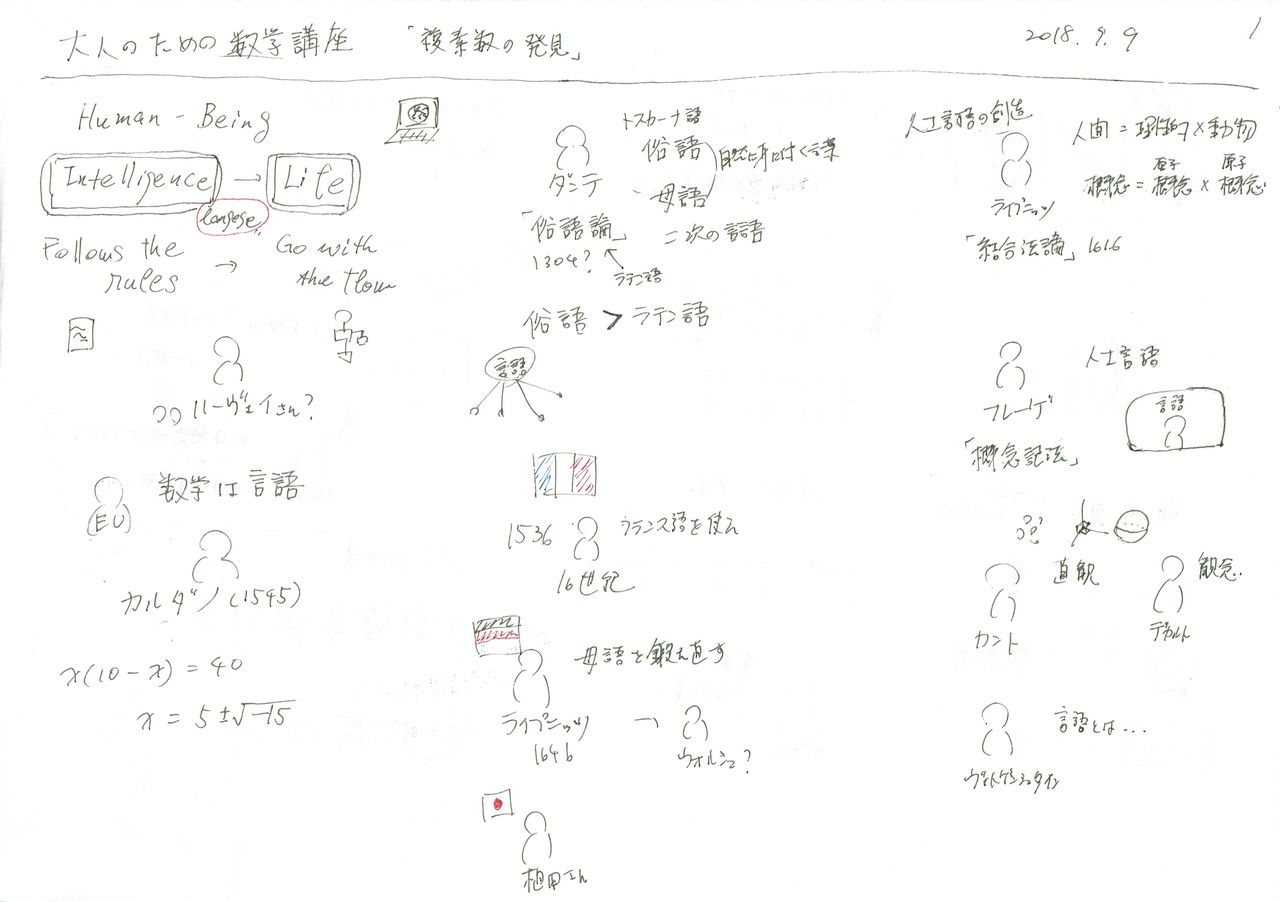 大人のための数学講座 「複素数の発見」 2018.9.9 1
Human-Being
Intelligence → Life
langege
Follows the rules → Go with the flow
ハーヴェイさん?
数学は言語
EU
カルダノ (1545)
x(10-x) = 40
x = 5±√-15
トスカーナ語
俗語
自然に身に付く言葉
母語
ダンテ
「俗語論」
二次の言語
1304?
ラテン語
俗語 > ラテン語
言語
1536
フランス語を使え
16世紀
母語を鍛え直す
ライプニッツ
1646
→
ウォルシュ?
植田さん
人工言語の創造
人間 = 理性的 × 動物
原子 原子
概念 = 概念 × 概念
ライプニッツ
「結合法論」 1616
人工言語
フレーゲ
言語
「概念記法」
直観
観念.
カント
デカルト
言語とは...
ヴィトゲンシュタイン